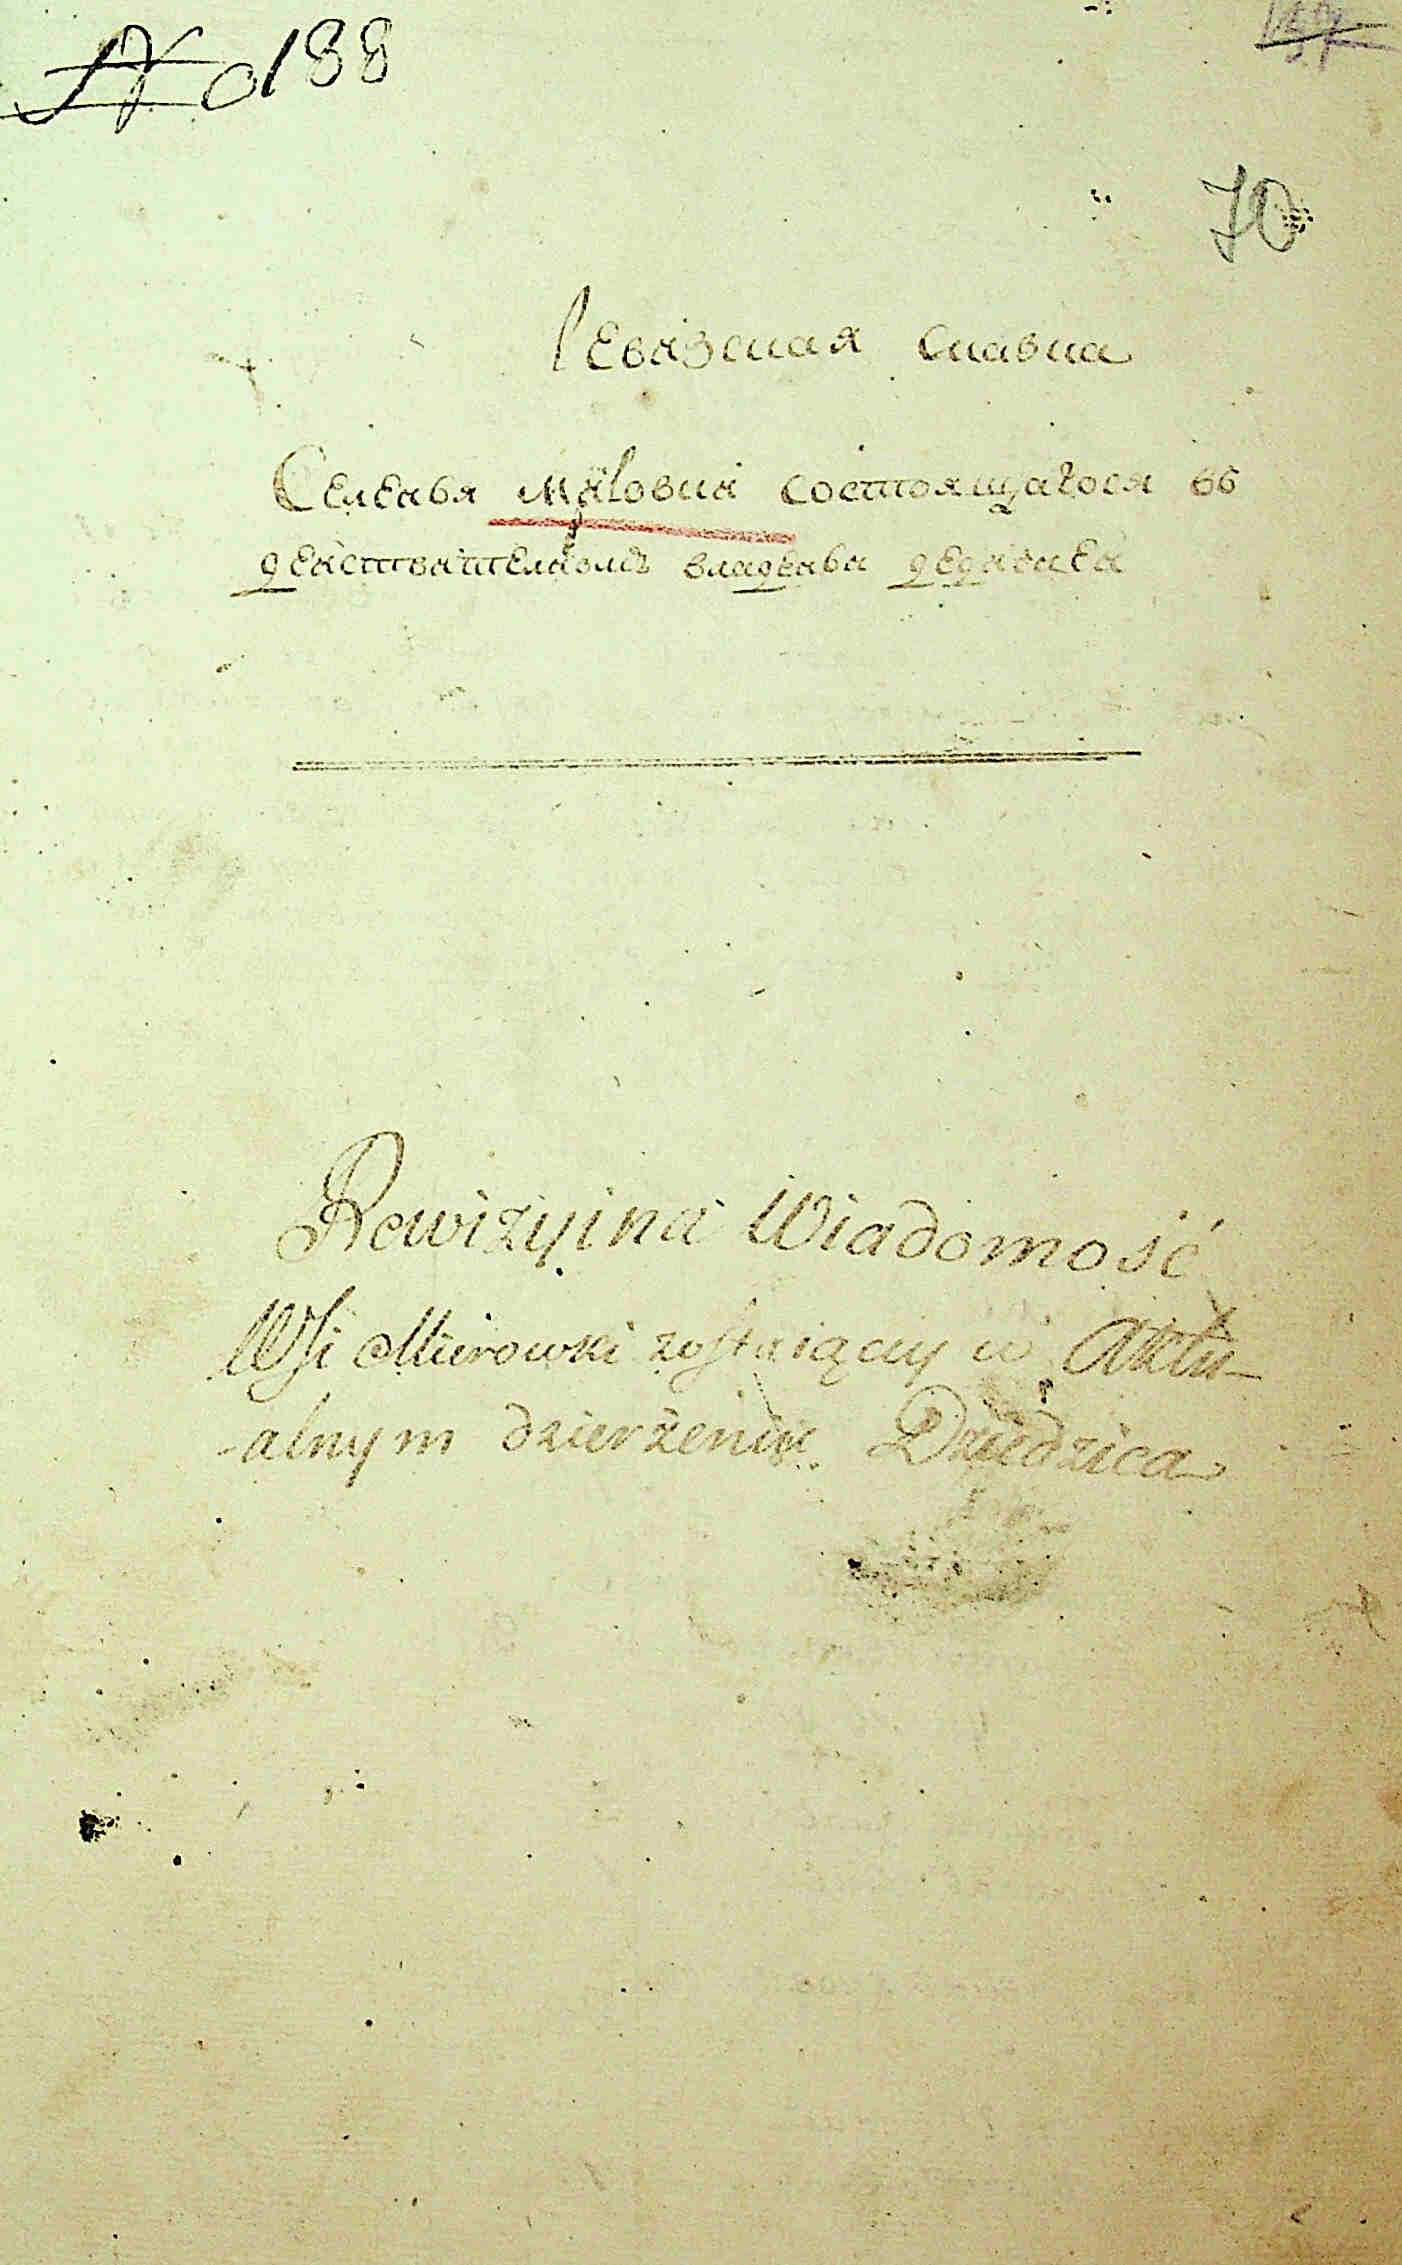 No 188
70
Ревизская сказка
Селения состоящагося въ
деиствителномъ владении дедича
Rewizyina Wiadomość
Wsi Mierowki zostaiącey w Aktu-
-alnym dzierżeniu Dziedzica